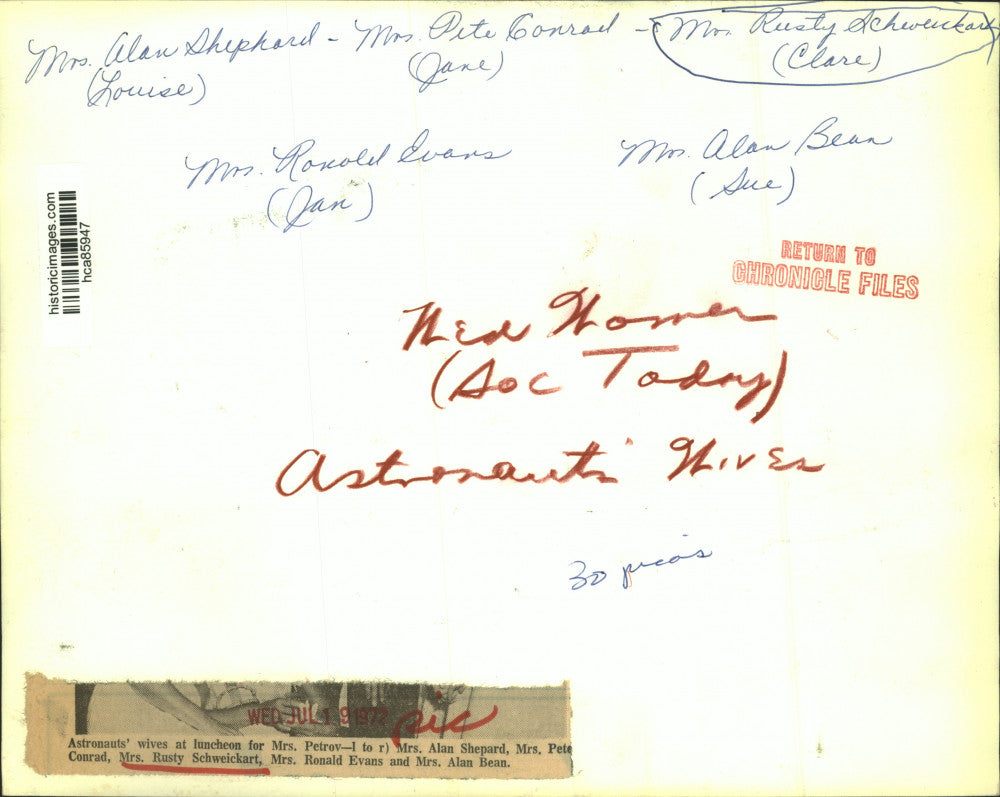 Mrs. Alan Shephard - Mrs. Pete Conrad - Mrs. Rusty Schweickart
(Louise) (Jane) (Clare)
Mrs. Ronald Evans Mrs. Alan Bean
(Jan) (Sue)
historicimages.com
hca85947
RETURN TO
CHRONICLE FILES
Wed Women
(Soc Today)
Astronauts' Wives
30 picas
WED JUL 19 1972 pic
Astronauts' wives at luncheon for Mrs. Petrov—l to r) Mrs. Alan Shepard, Mrs. Pete
Conrad, Mrs. Rusty Schweickart, Mrs. Ronald Evans and Mrs. Alan Bean.